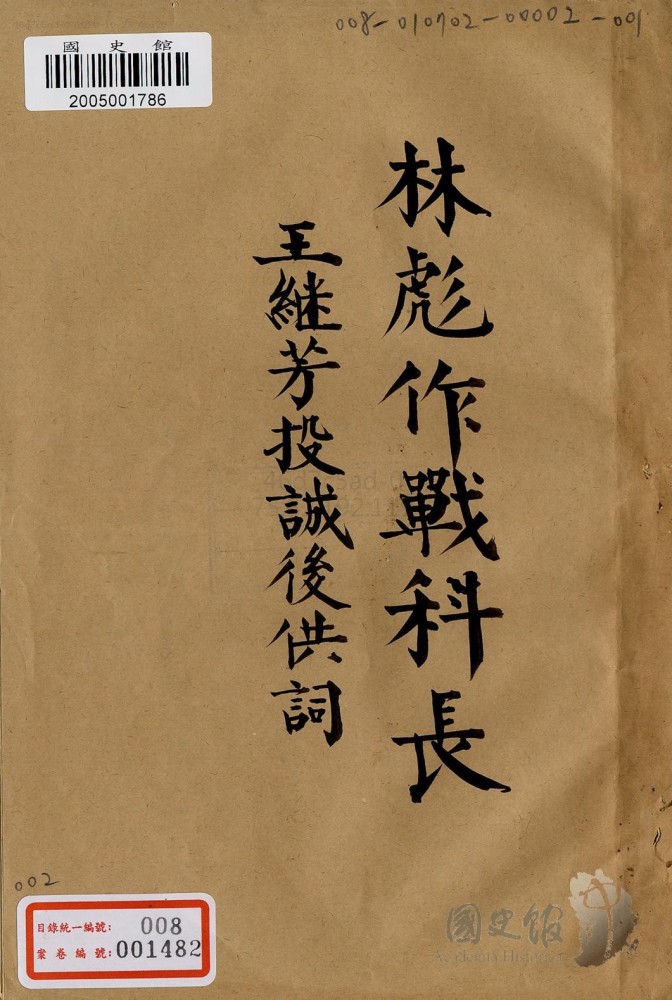 008-010702-00002-001
國史館
2005001786
林彪作戰科長
王継芳投誠後供詞
002
目錄統一編號: 008
案卷編號: 001482
國史館
Academia Historica